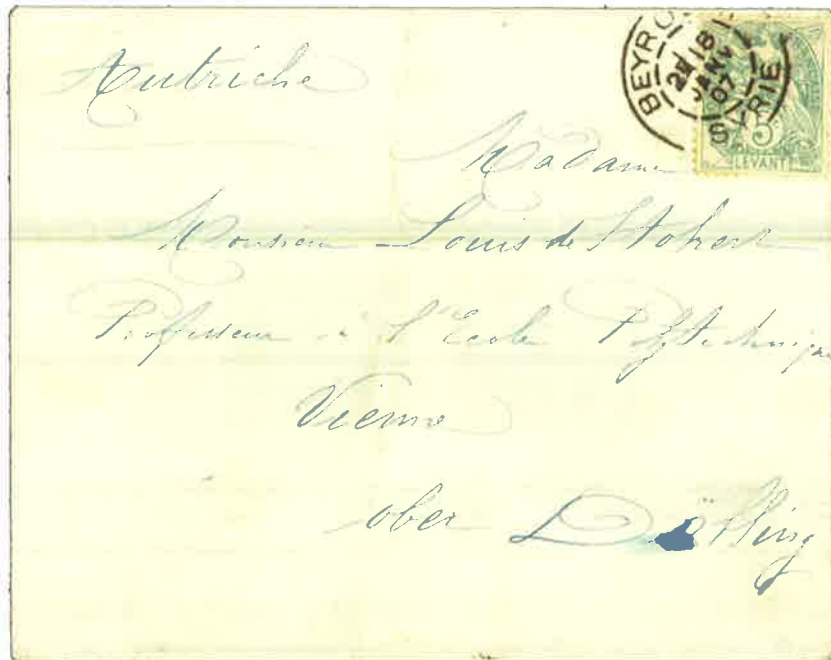 Autriche
BEYRO
2E 18
JANV
07
SYRIE
5
LEVANT
Madame
Monsieur Louis de
Professeur à l'Ecole Polytechnique
Vienne
ober Döbling